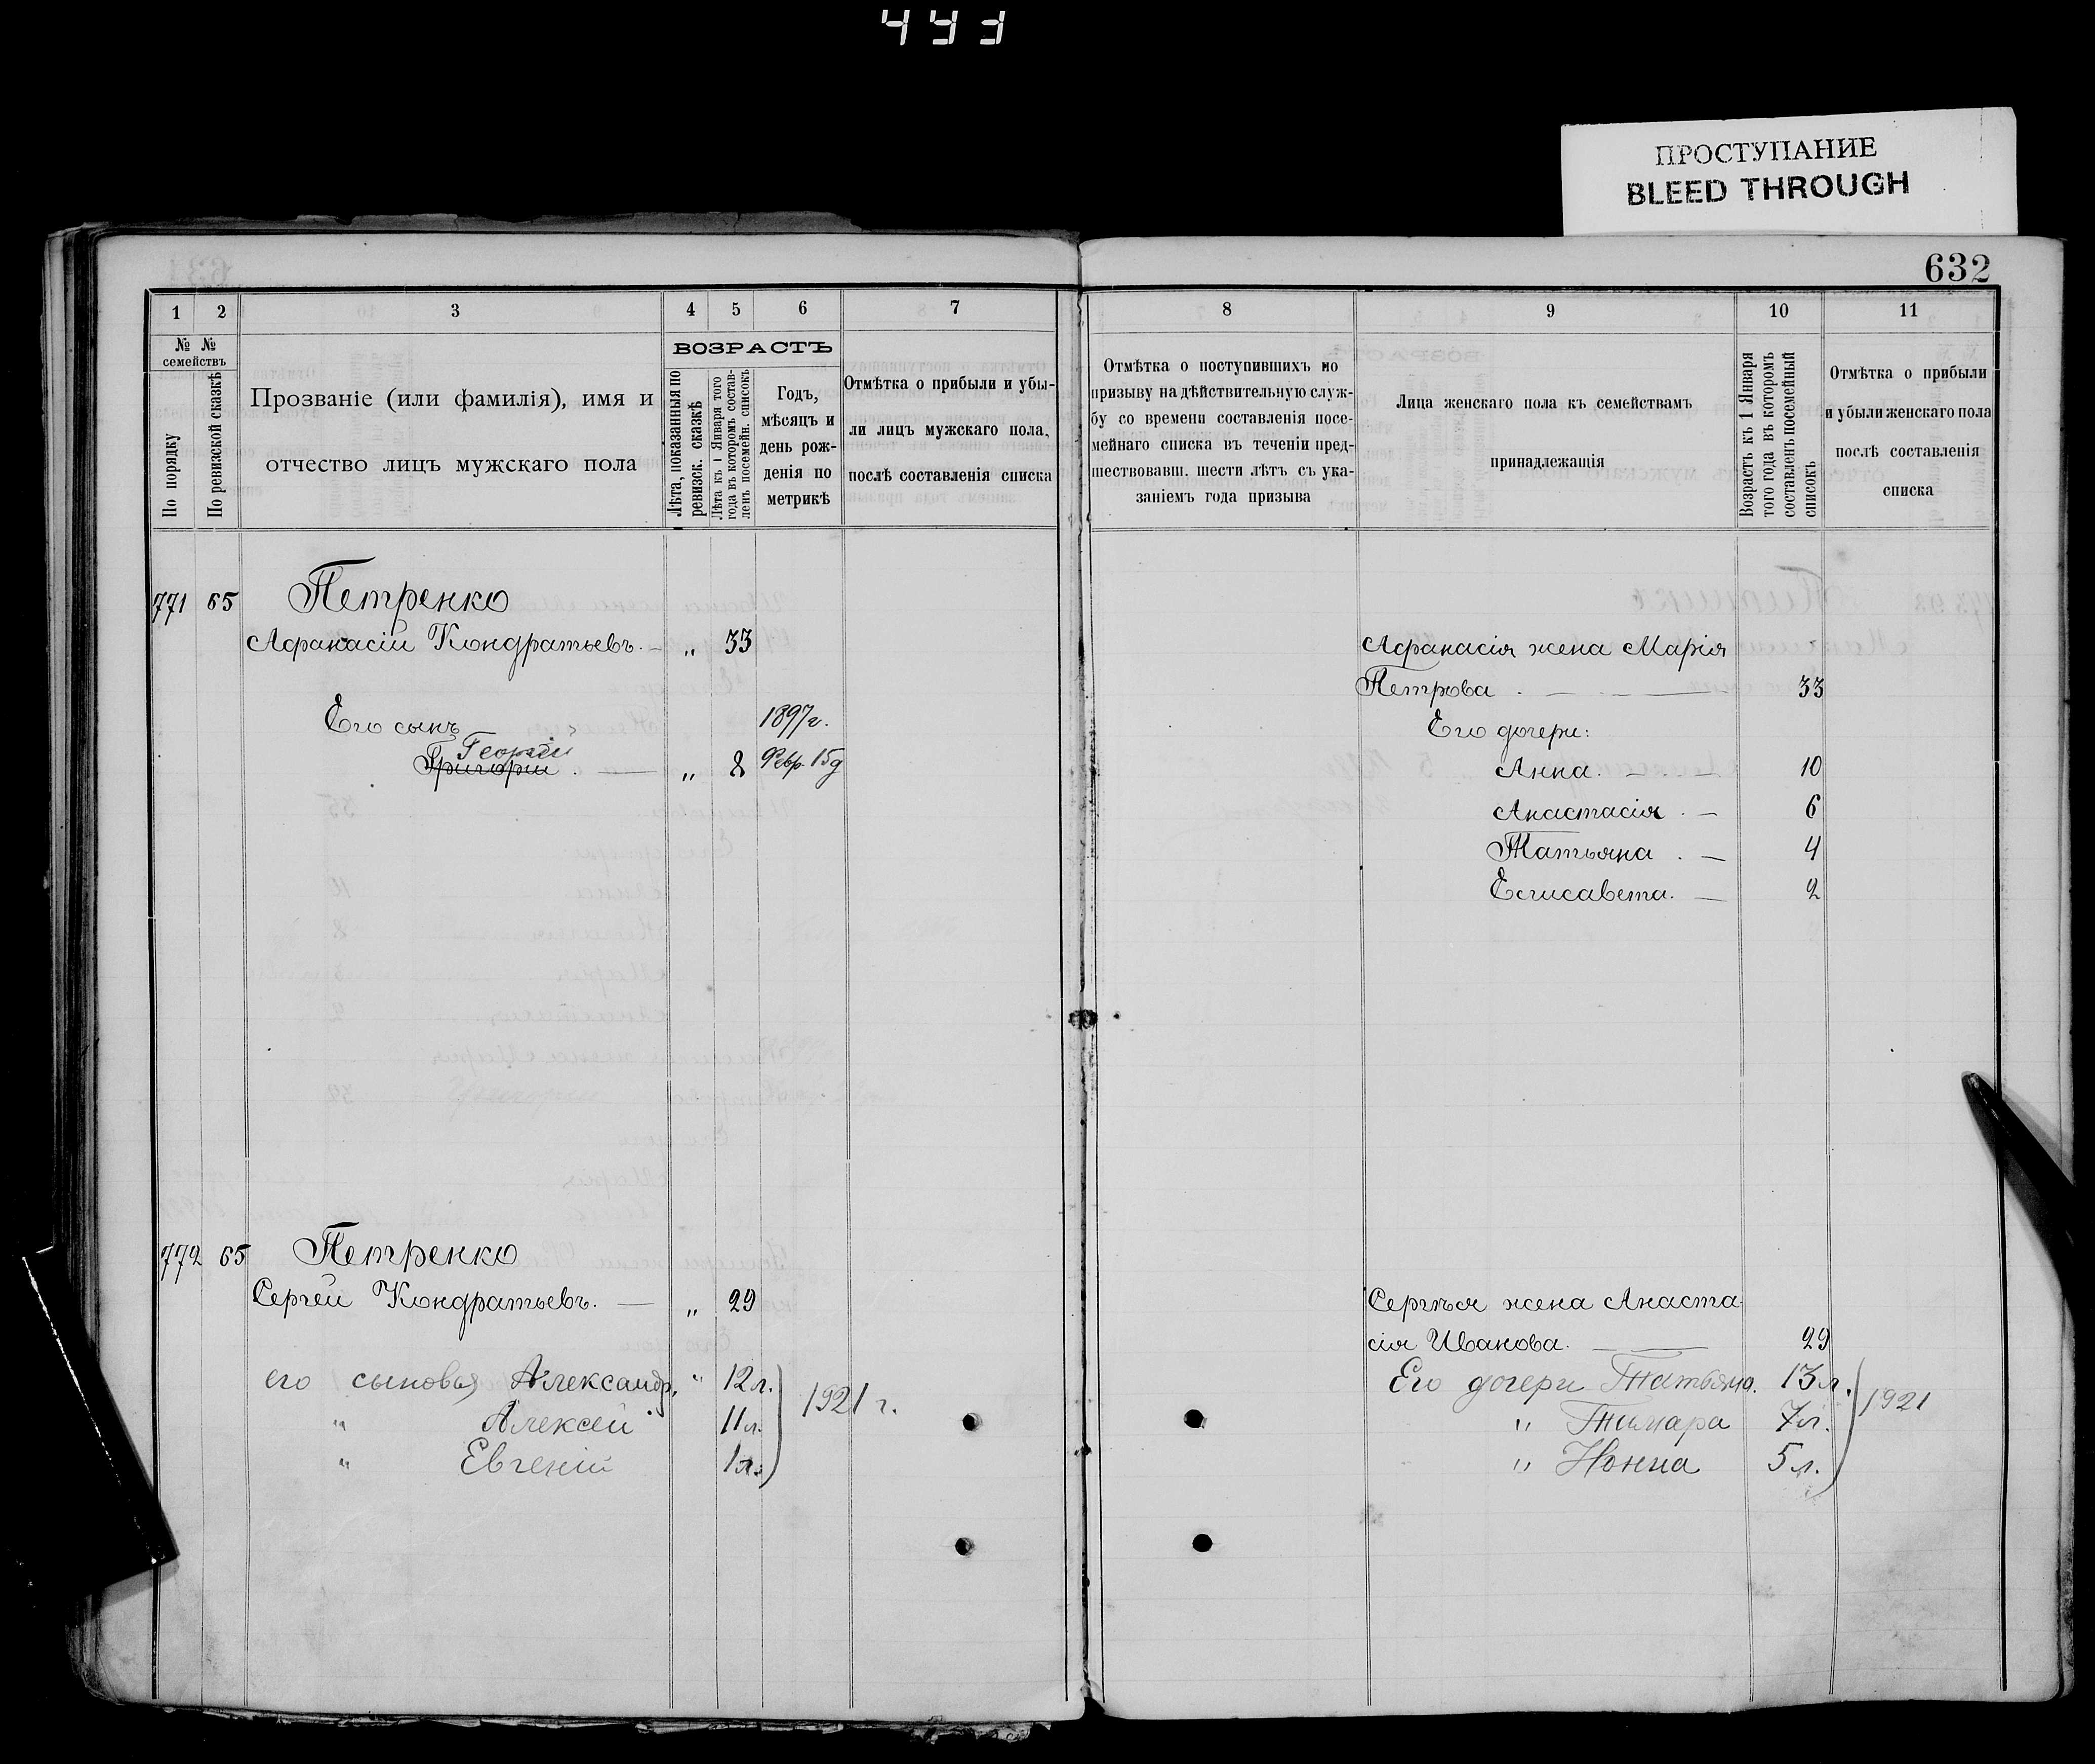 443
ПРОСТУПАНИЕ
BLEED THROUGH
632
1 2 3 4 5 6 7
№ № семействъ
По порядку
По ревизской сказкѣ
Прозваніе (или фамилія), имя и
отчество лицъ мужскаго пола
ВОЗРАСТЪ
Лѣта, показанныя по
ревизск. сказкѣ
Лѣта къ 1 Января того
года въ которомъ состав-
ленъ посемейн. списокъ
Годъ,
мѣсяцъ и
день рож-
денія по
метрикѣ
Отмѣтка о прибыли и убы-
ли лицъ мужскаго пола,
послѣ составленія списка
771 65 Петренко
Афанасій Кондратьевъ. — „ 33
Его сынъ 1897 г.
Георгій
Григорій . — „ 8 Февр. 15 д
772 65 Петренко
Сергей Кондратьевъ. — „ 29
его сыновья Александр. " 12 л.
" Алексей 11 л. 1921 г.
" Евгеній 1 л.
8 9 10 11
Отмѣтка о поступившихъ по
призыву на дѣйствительную служ-
бу со времени составленія посе-
мейнаго списка въ теченіи пред-
шествовавш. шести лѣтъ съ ука-
заніемъ года призыва
Лица женскаго пола къ семействамъ
принадлежащія
Возрастъ къ 1 Января
того года въ которомъ
составленъ посемейный
списокъ
Отмѣтка о прибыли
и убыли женскаго пола
послѣ составленія
списка
Афанасія жена Марія
Петрова . — 33
Его дочери:
Анна. — 10
Анастасія . — 6
Татьяна . — 4
Елисавета. — 2
Сергѣя жена Анаста-
сія Иванова. — 29
Его дочери Татьяна. 13 л.
" Тамара 7 л. 1921
" Нонна 5 л.